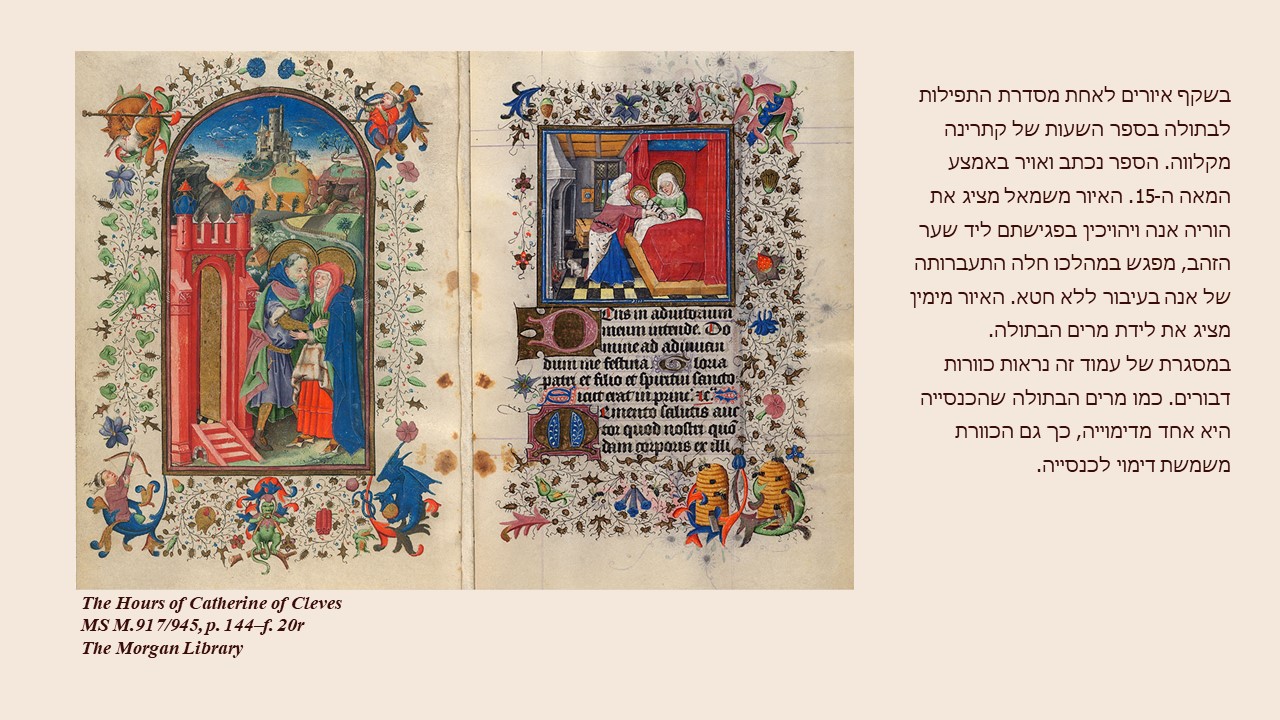 בשקף איורים לאחת מסדרת התפילות
לבתולה בספר השעות של קתרינה
מקלווה. הספר נכתב ואויר באמצע
המאה ה-15. האיור משמאל מציג את
הוריה אנה ויהויכין בפגישתם ליד שער
הזהב, מפגש במהלכו חלה התעברותה
של אנה בעיבור ללא חטא. האיור מימין
מציג את לידת מרים הבתולה.
במסגרת של עמוד זה נראות כוורות
דבורים. כמו מרים הבתולה שהכנסייה
היא אחד מדימוייה, כך גם הכוורת
משמשת דימוי לכנסייה.
eus in adiutorium
meum intende. Do
mine ad adiuuan
dum me festina Gloria
patri et filio et spiritui sancto
Sicut erat in princ.
Memento salutis auc
tor quod nostri quo
dam corporis ex illi
The Hours of Catherine of Cleves
MS M.917/945, p. 144–f. 20r
The Morgan Library